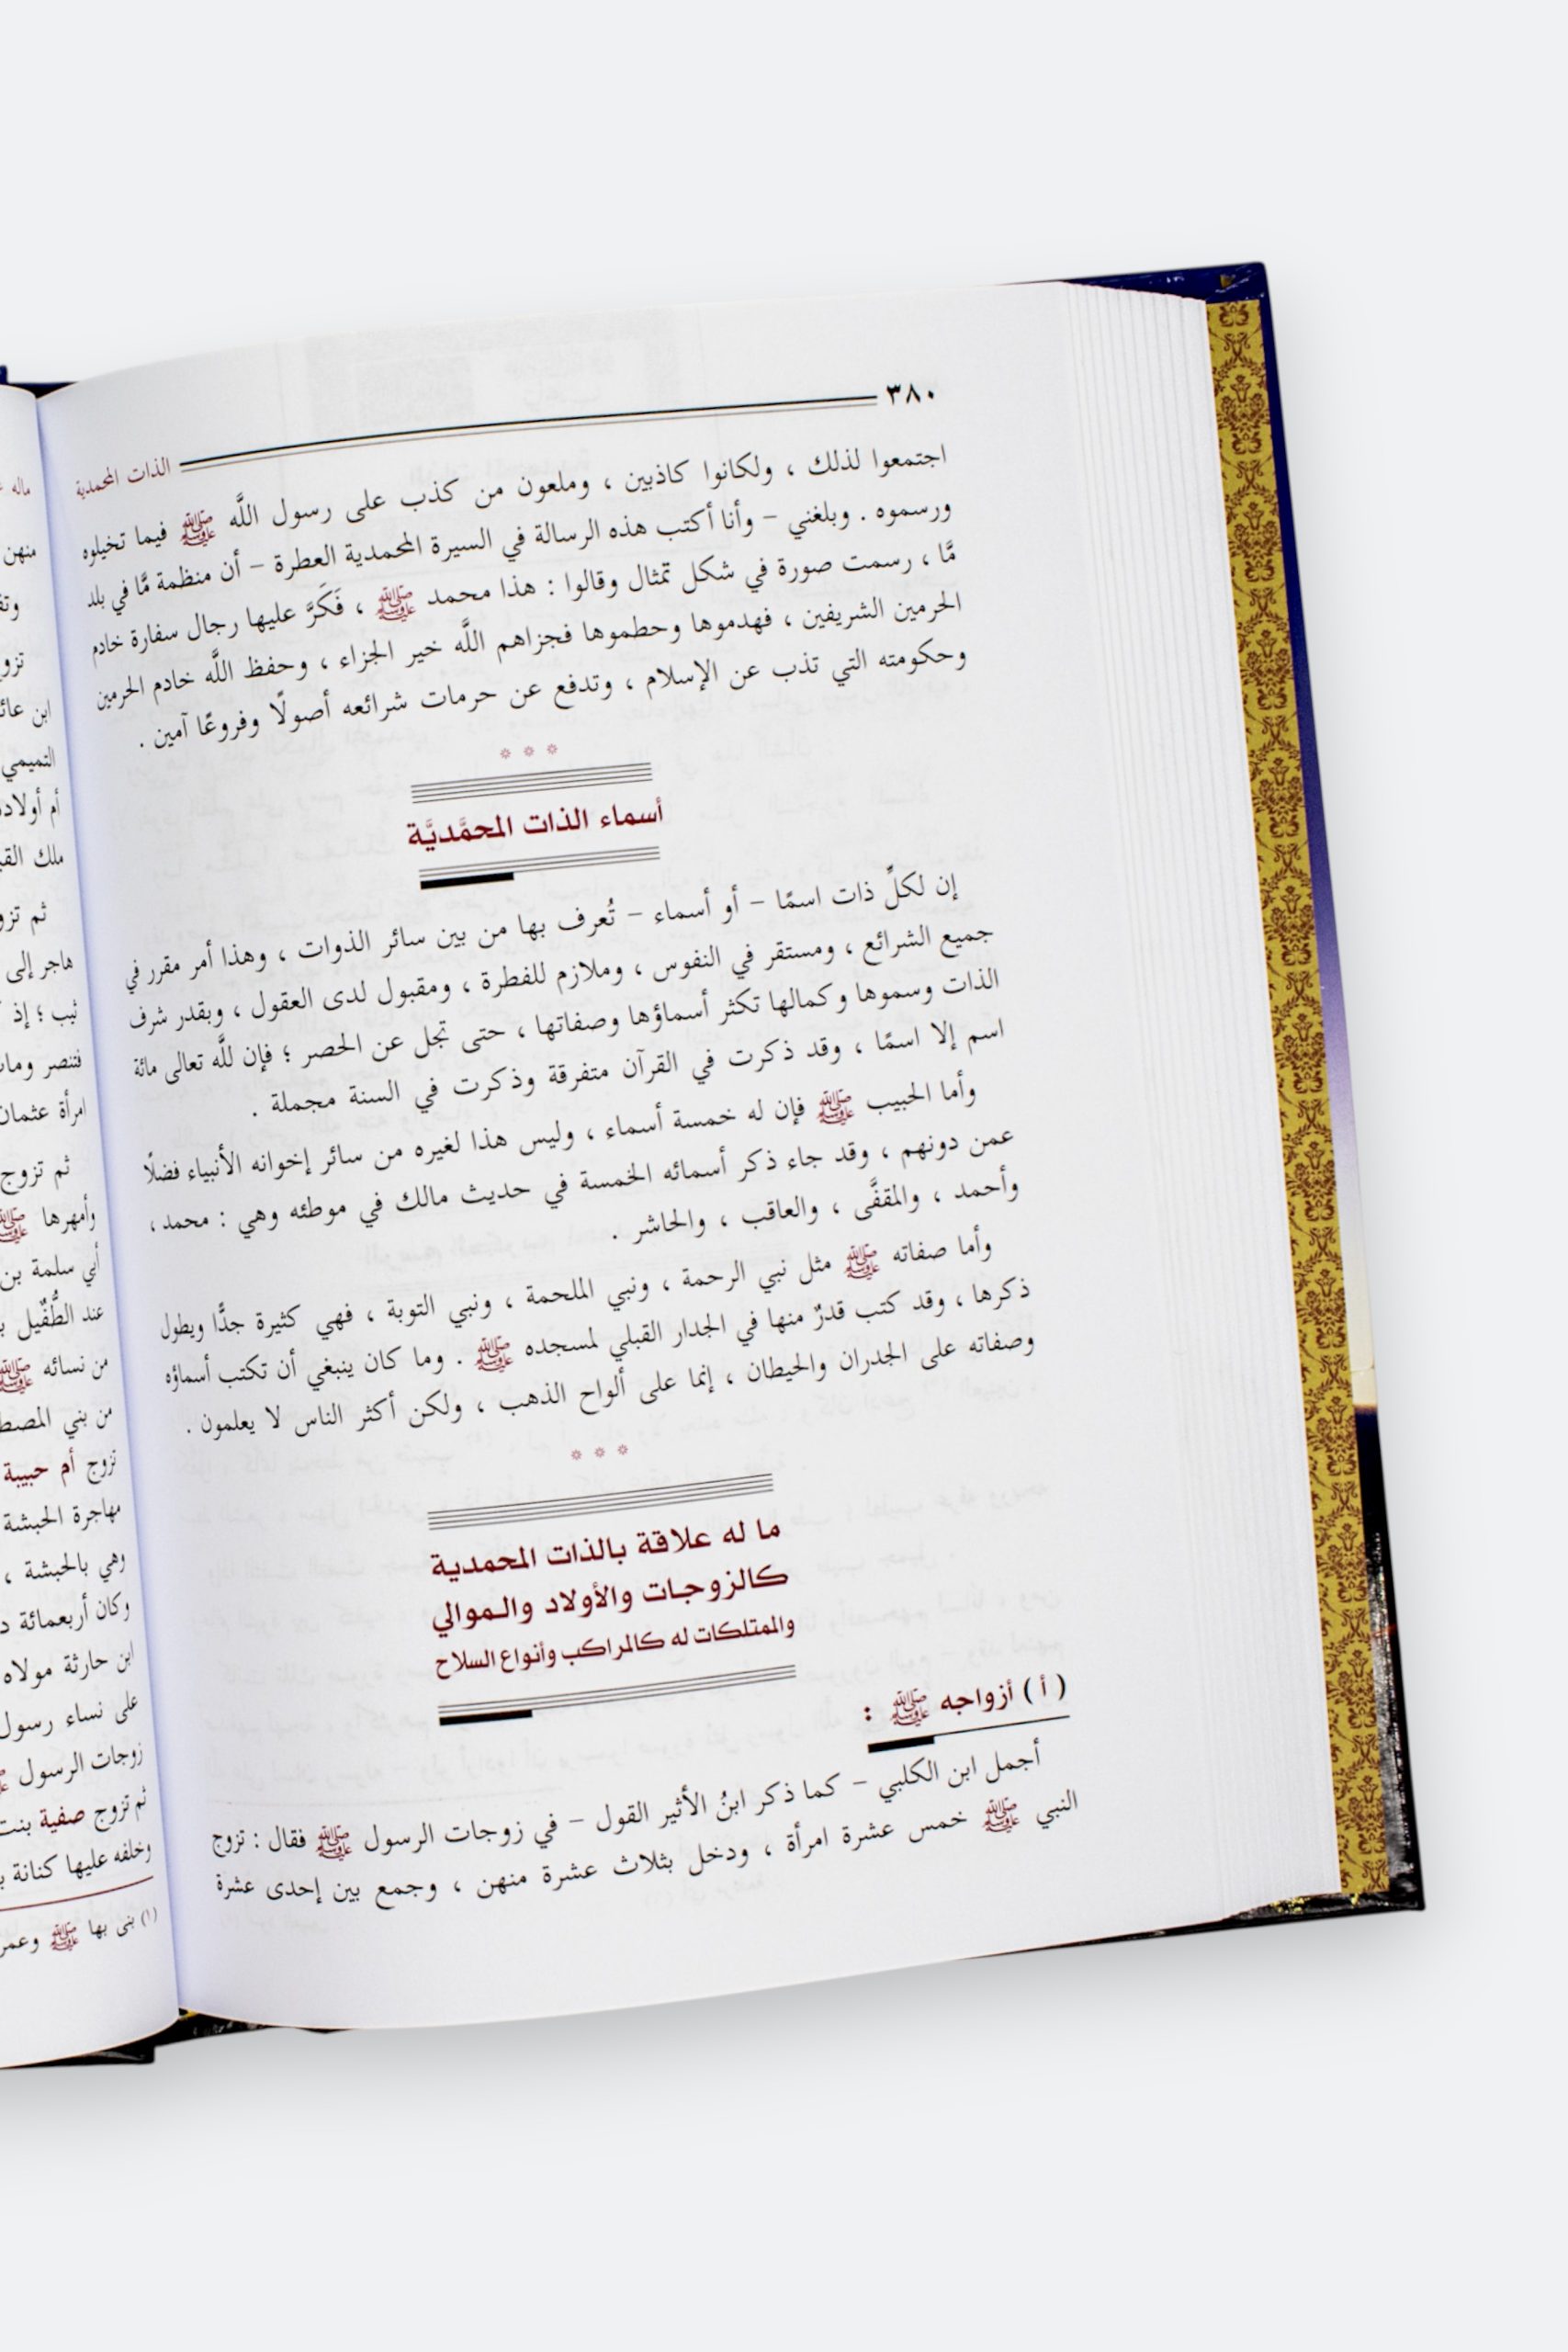 ٣٨٠
الذات المحمدية
اجتمعوا لذلك ، ولكانوا كاذبين ، وملعون من كذب على رسول اللَّه ﷺ فيما تخيلوه
ورسموه . وبلغني – وأنا أكتب هذه الرسالة في السيرة المحمدية العطرة – أن منظمة مَّا في بلد
مَّا ، رسمت صورة في شكل تمثال وقالوا : هذا محمد ﷺ ، فَكَرَّ عليها رجال سفارة خادم
الحرمين الشريفين ، فهدموها وحطموها فجزاهم اللَّه خير الجزاء ، وحفظ اللَّه خادم الحرمين
وحكومته التي تذب عن الإسلام ، وتدفع عن حرمات شرائعه أصولًا وفروعًا آمين .
أسماء الذات المحمَّديَّة
إن لكلِّ ذات اسمًا – أو أسماء – تُعرف بها من بين سائر الذوات ، وهذا أمر مقرر في
جميع الشرائع ، ومستقر في النفوس ، وملازم للفطرة ، ومقبول لدى العقول ، وبقدر شرف
الذات وسموها وكمالها تكثر أسماؤها وصفاتها ، حتى تجل عن الحصر ؛ فإن للَّه تعالى مائة
اسم إلا اسمًا ، وقد ذكرت في القرآن متفرقة وذكرت في السنة مجملة .
وأما الحبيب ﷺ فإن له خمسة أسماء ، وليس هذا لغيره من سائر إخوانه الأنبياء فضلًا
عمن دونهم ، وقد جاء ذكر أسمائه الخمسة في حديث مالك في موطئه وهي : محمد ،
وأحمد ، والمقفَّى ، والعاقب ، والحاشر .
وأما صفاته ﷺ مثل نبي الرحمة ، ونبي الملحمة ، ونبي التوبة ، فهي كثيرة جدًّا ويطول
ذكرها ، وقد كتب قدرٌ منها في الجدار القبلي لمسجده ﷺ . وما كان ينبغي أن تكتب أسماؤه
وصفاته على الجدران والحيطان ، إنما على ألواح الذهب ، ولكن أكثر الناس لا يعلمون .
ما له علاقة بالذات المحمدية
كالزوجات والأولاد والموالي
والممتلكات له كالمراكب وأنواع السلاح
( أ ) أزواجه ﷺ :
أجمل ابن الكلبي – كما ذكر ابنُ الأثير القول – في زوجات الرسول ﷺ فقال : تزوج
النبي ﷺ خمس عشرة امرأة ، ودخل بثلاث عشرة منهن ، وجمع بين إحدى عشرة
ماله
منهن
تزوج
ابن
التميمي
أم
ملك
ثم
هاجر إلى
ثيب ؛ إذ
فتنصر
امرأة عثمان
ثم تزوج
وأمهرها ﷺ
أبي سلمة بن
عند الطُّفَيل
من نسائه ﷺ
من بني
تزوج أم حبيبة
مهاجرة الحبشة
وهي بالحبشة ،
وكان أربعمائة
ابن حارثة مولاه
على نساء رسول
زوجات الرسول
ثم تزوج صفية بنت
وخلفه عليها كنانة
(١) بنى بها ﷺ